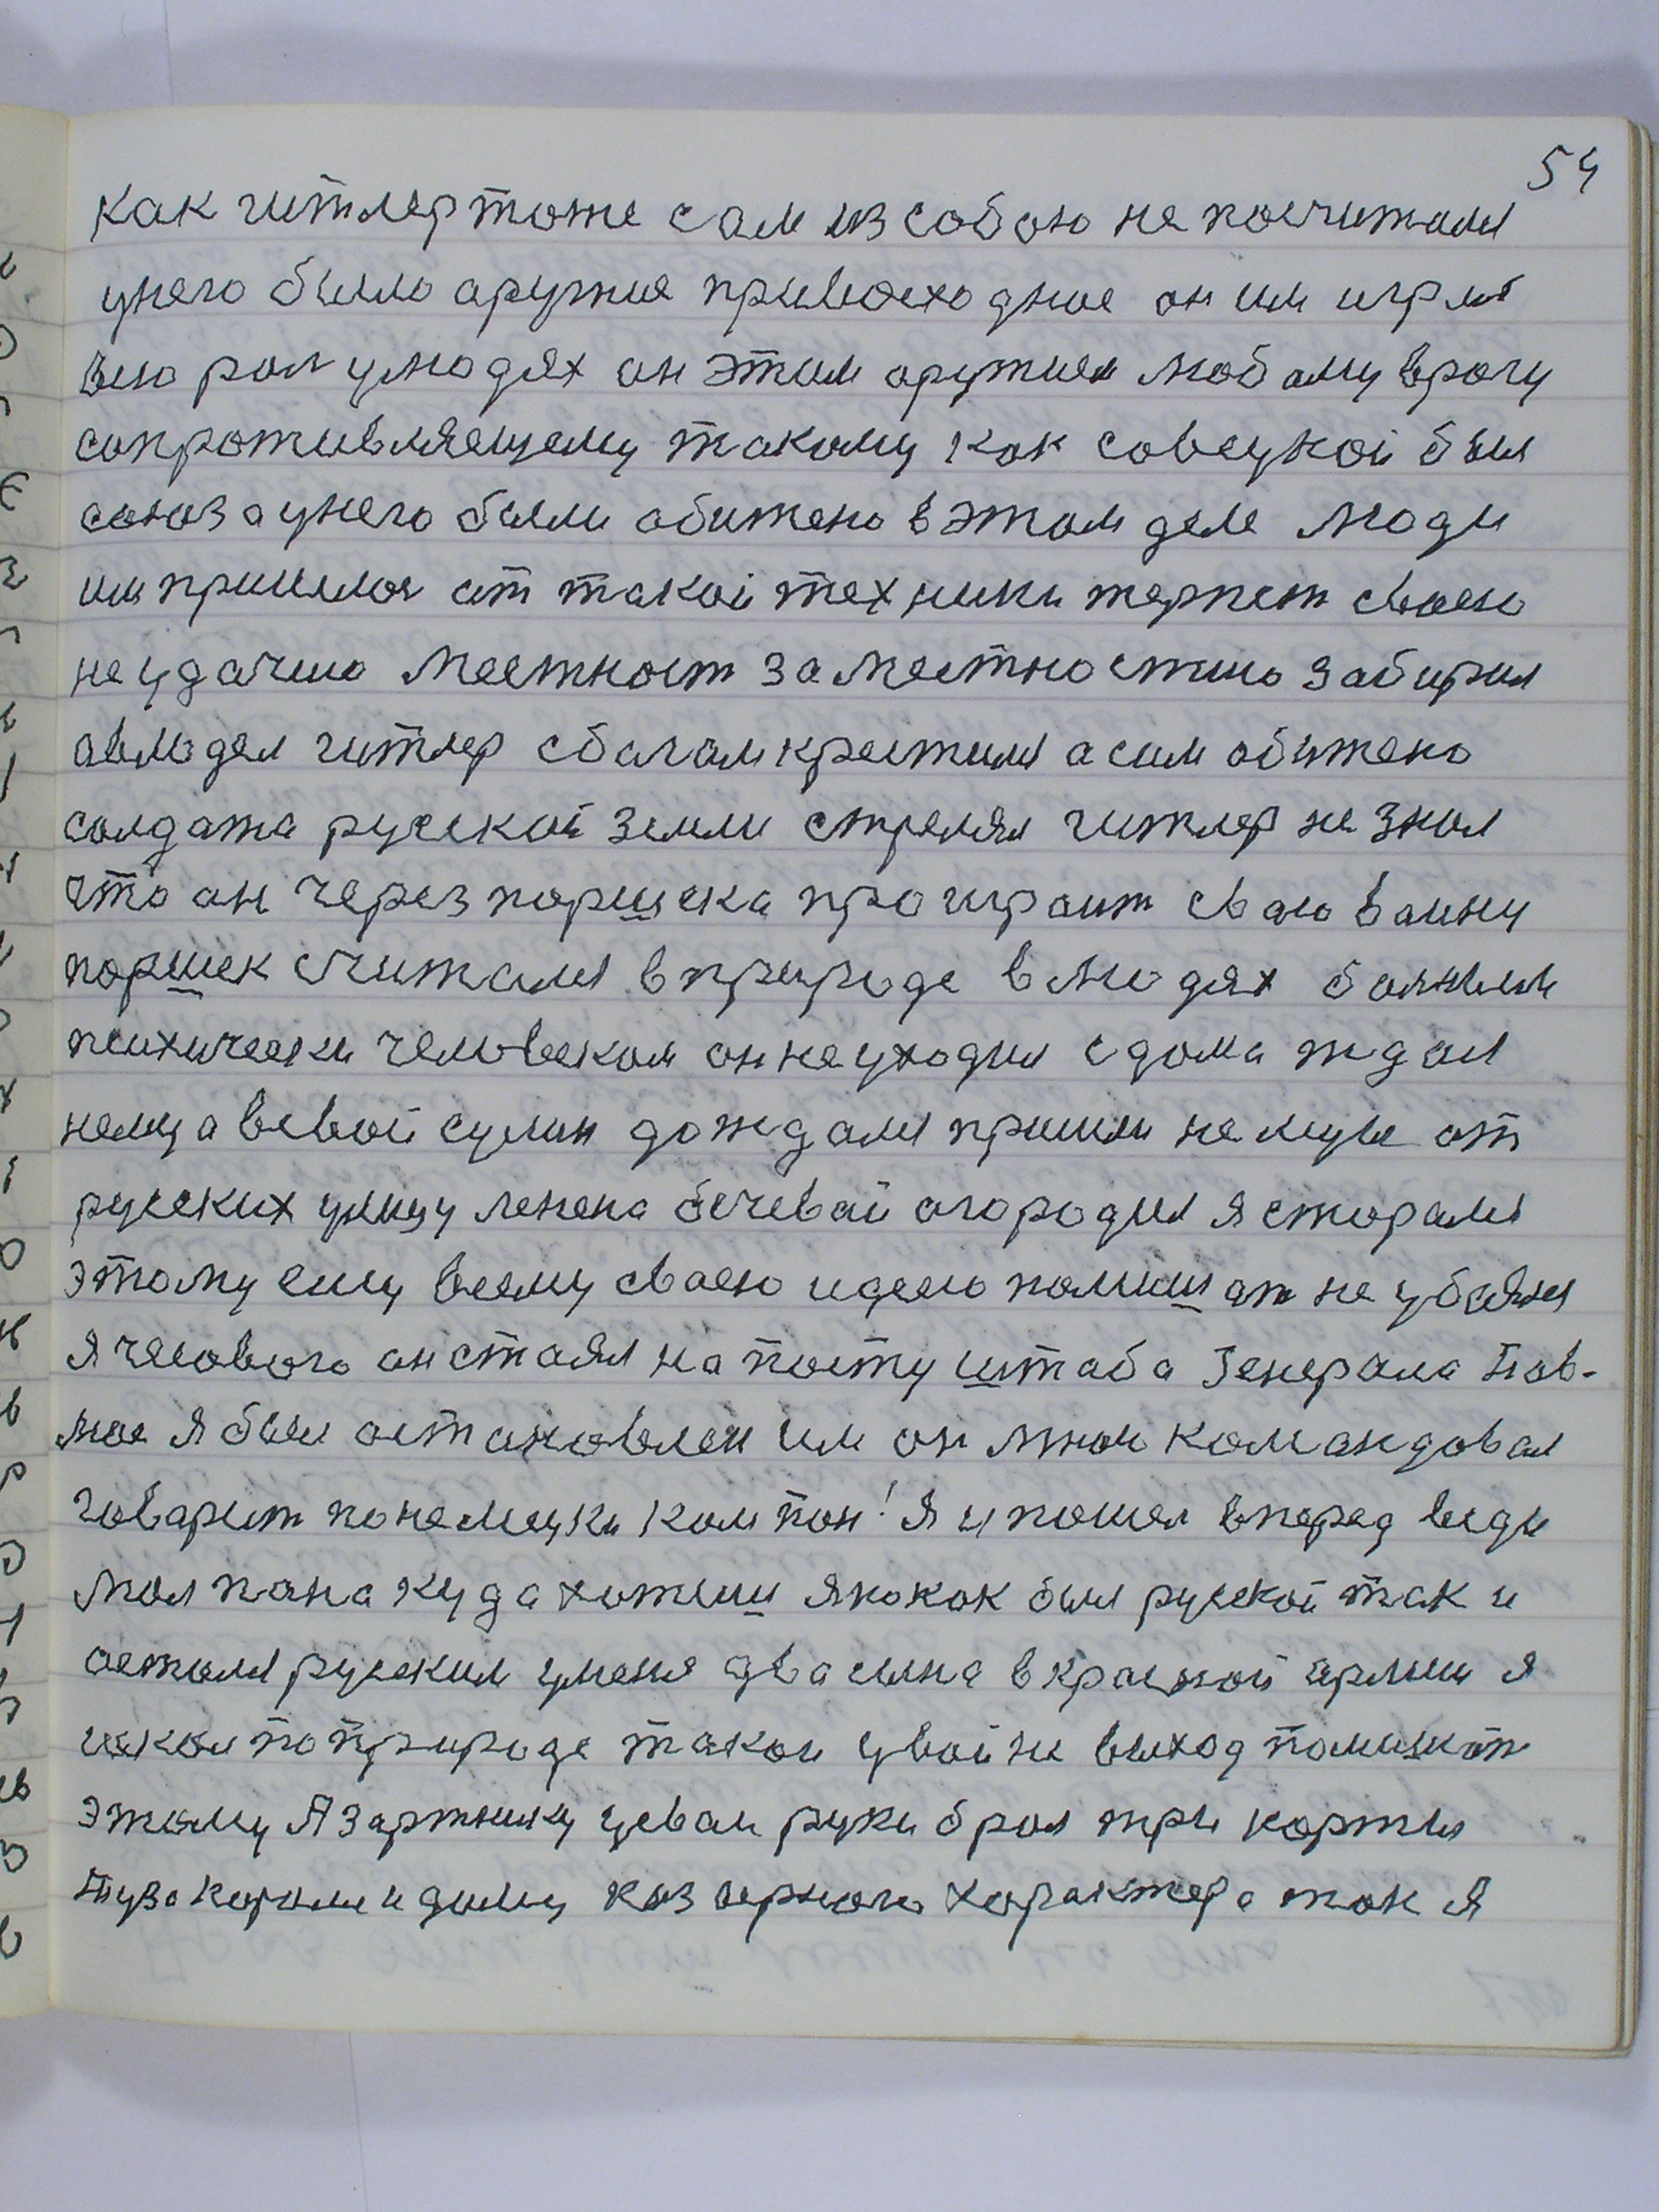 54
как гитлер тоже сам из собою не посчитался
унего было аружия привосходное он им играл
всю рол улюдях он этим аружием любому врагу
сопротивляещему такому как совецкой был
союз а унего были обижено вэтом деле люди
им пришлося от такой техники терпет своею
неудачию местност заместностию забирал
овлодел гитлер сбагам крестился асам обижено
солдата руской земли стрелял гитлер не знал
что он через поршека проиграит сваю ваину
поршек считался вприроде влюдях больным
психически человеком он неуходил с дома ждал
немца всвой сулин дождался пришли немцы от
руских улицу ленена бечевай огородил я старался
этому ему всему сваею идею помишат не убоялся
я часового он стаял на посту штаба Генерала Пав-
лоя я был остановлен им он мною командовал
говарит понемецки ком пан! я и пошел вперед веди
мол пана куда хотиш я как был руской так и
остался руским уменя два сына вкрасной армии я
искал поприроде такои увойне выход помишат
этаму Азартнику усваи руки брал три карты
Туза короля и даму казырнога характера так я